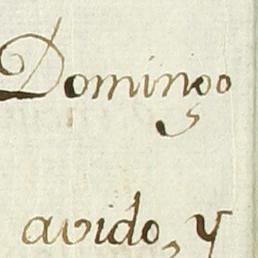 Domingo
avido, y